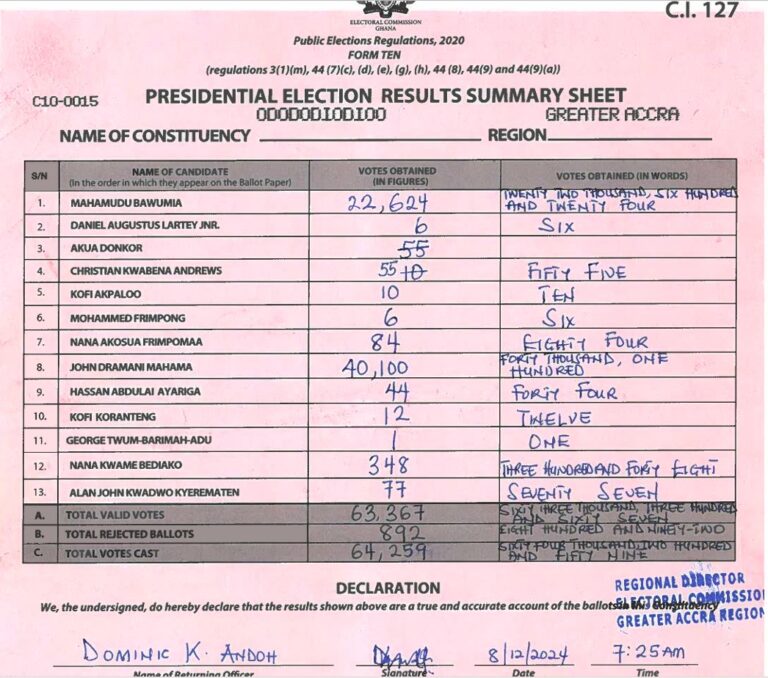 C.I. 127
ELECTORAL COMMISSION
GHANA
Public Elections Regulations, 2020
FORM TEN
(regulations 3(1)(m), 44 (7)(c), (d), (e), (g), (h), 44 (8), 44(9) and 44(9)(a))
C10-0015 PRESIDENTIAL ELECTION RESULTS SUMMARY SHEET
ODODODIODIOO GREATER ACCRA
NAME OF CONSTITUENCY REGION
S/N NAME OF CANDIDATE (In the order in which they appear on the Ballot Paper) VOTES OBTAINED (IN FIGURES) VOTES OBTAINED (IN WORDS)
1. MAHAMUDU BAWUMIA 22,624 TWENTY TWO THOUSAND, SIX HUNDRED AND TWENTY FOUR
2. DANIEL AUGUSTUS LARTEY JNR. 6 SIX
3. AKUA DONKOR 55
4. CHRISTIAN KWABENA ANDREWS 55 10 FIFTY FIVE
5. KOFI AKPALOO 10 TEN
6. MOHAMMED FRIMPONG 6 SIX
7. NANA AKOSUA FRIMPOMAA 84 EIGHTY FOUR
8. JOHN DRAMANI MAHAMA 40,100 FORTY THOUSAND, ONE HUNDRED
9. HASSAN ABDULAI AYARIGA 44 FORTY FOUR
10. KOFI KORANTENG 12 TWELVE
11. GEORGE TWUM-BARIMAH-ADU 1 ONE
12. NANA KWAME BEDIAKO 348 THREE HUNDRED AND FORTY EIGHT
13. ALAN JOHN KWADWO KYEREMATEN 77 SEVENTY SEVEN
A. TOTAL VALID VOTES 63,367 SIXTY THREE THOUSAND, THREE HUNDRED AND SIXTY SEVEN
B. TOTAL REJECTED BALLOTS 892 EIGHT HUNDRED AND NINETY-TWO
C. TOTAL VOTES CAST 64,259 SIXTY FOUR THOUSAND, TWO HUNDRED AND FIFTY NINE
DECLARATION
We, the undersigned, do hereby declare that the results shown above are a true and accurate account of the ballots in this Constituency
REGIONAL DIRECTOR
ELECTORAL COMMISSION
GREATER ACCRA REGION
DOMINIC K. ANDOH 8/12/2024 7:25AM
Name of Returning Officer Signature Date Time